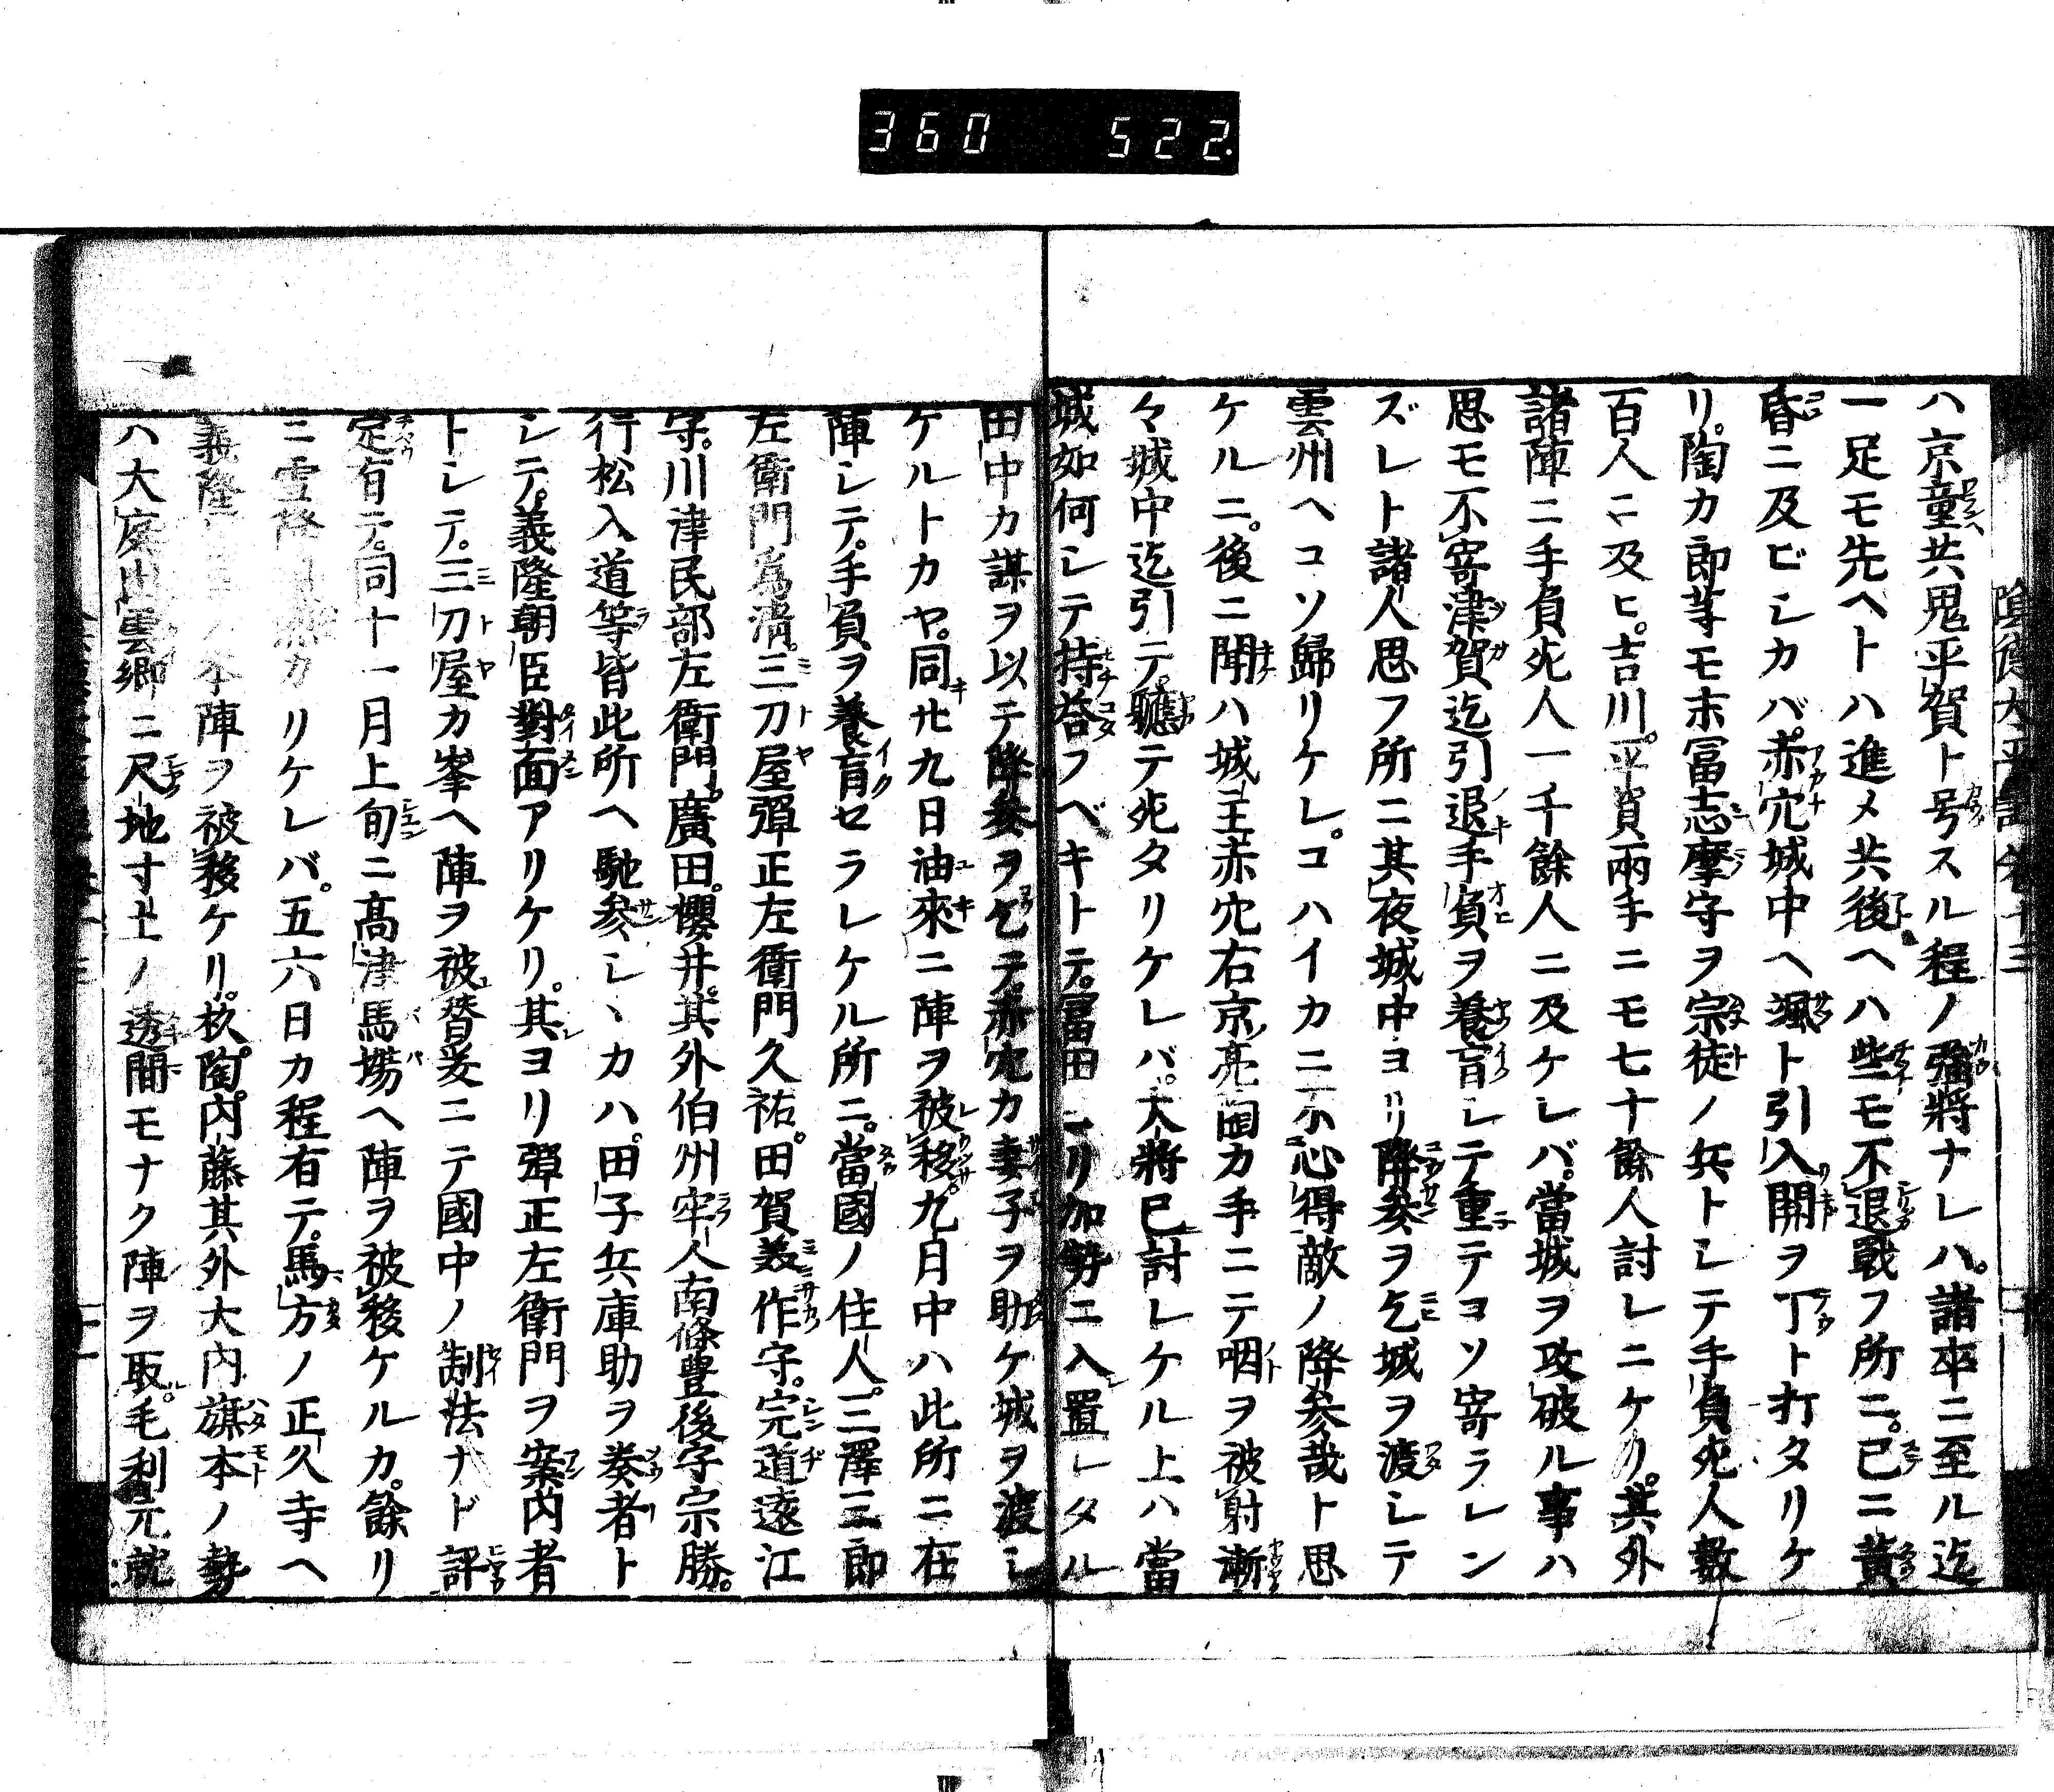 360 522
ハ京童共鬼平賀ト号スル程ノ彌將ナレハ。諸卒ニ至ル迄
一足モ先ヘトハ進メ共後ヘハ些モ不退戰フ所ニ。已ニ黄
昏ニ及ビシカバ。赤穴城中ヘ颯ト引入開ヲ丁ト打タリケ
リ。陶カ郎等モ末冨志摩守ヲ宗徒ノ兵トシテ手負死人數
百人ニ及ヒ。吉川。平賀兩手ニモ七十餘人討レニケリ。其外
諸陣ニ手負死人一千餘人ニ及ケレバ。當城ヲ攻破ル事ハ
思モ不寄津賀迄引退手負ヲ養盲シテ重テヨソ寄ラレン
ズレト諸人思フ所ニ其夜城中ヨリ降參ヲ乞城ヲ渡シテ
雲州ヘコソ歸リケレ。コハイカニ不心得敵ノ降参哉ト思
ケルニ。後ニ聞ハ城主赤穴右京亮陶カ手ニテ咽ヲ被射漸
々城中迄引テ。聽テ死タリケレバ。大將已討レケル上ハ當
城如何シテ持答フベキトテ。冨田ヨリ加勢ニ入置レタル
田中カ謀ヲ以テ降參ヲ乞テ。赤穴カ妻子ヲ助ケ城ヲ渡シ
ケルトカヤ。同廿九日油來ニ陣ヲ被移。九月中ハ此所ニ在
陣シテ。手負ヲ養育セラレケル所ニ。當國ノ住人。三澤三郎
左衛門爲淸。三刀屋彈正左衛門久祐。田賀美作守。宍道遠江
守。川津民部左衛門。廣田。櫻井。其外伯州牢人南條豊後守宗勝。
行松入道等皆此所ヘ馳参シヽカハ。田子兵庫助ヲ奏者ト
シテ。義隆朝臣對面アリケリ。其ヨリ彈正左衛門ヲ案内者
トシテ。三刀屋カ峯ヘ陣ヲ被替爰ニテ國中ノ制法ナド評
定有テ。同十一月上旬ニ髙津馬塲ヘ陣ヲ被移ケルカ。餘リ
ニ雪降カリケレバ。五六日カ程有テ。馬方ノ正久寺ヘ
義隆ノ本陣ヲ被移ケリ。杦。陶。内藤其外大内旗本ノ勢
ハ大庭出雲郷ニ尺地寸土ノ透間モナク陣ヲ取。毛利元就